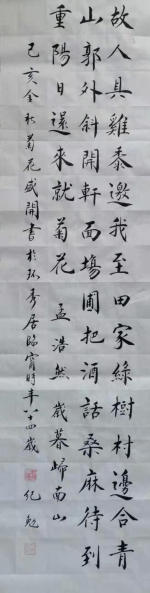 故人具雞黍邀我至田家綠樹村邊合青
山郭外斜開軒面場圃把酒話桑麻待到
重陽日還來就菊花 孟浩然 歲暮歸南山
己亥金秋菊花盛開書於 秀居臨窗時年八四歲